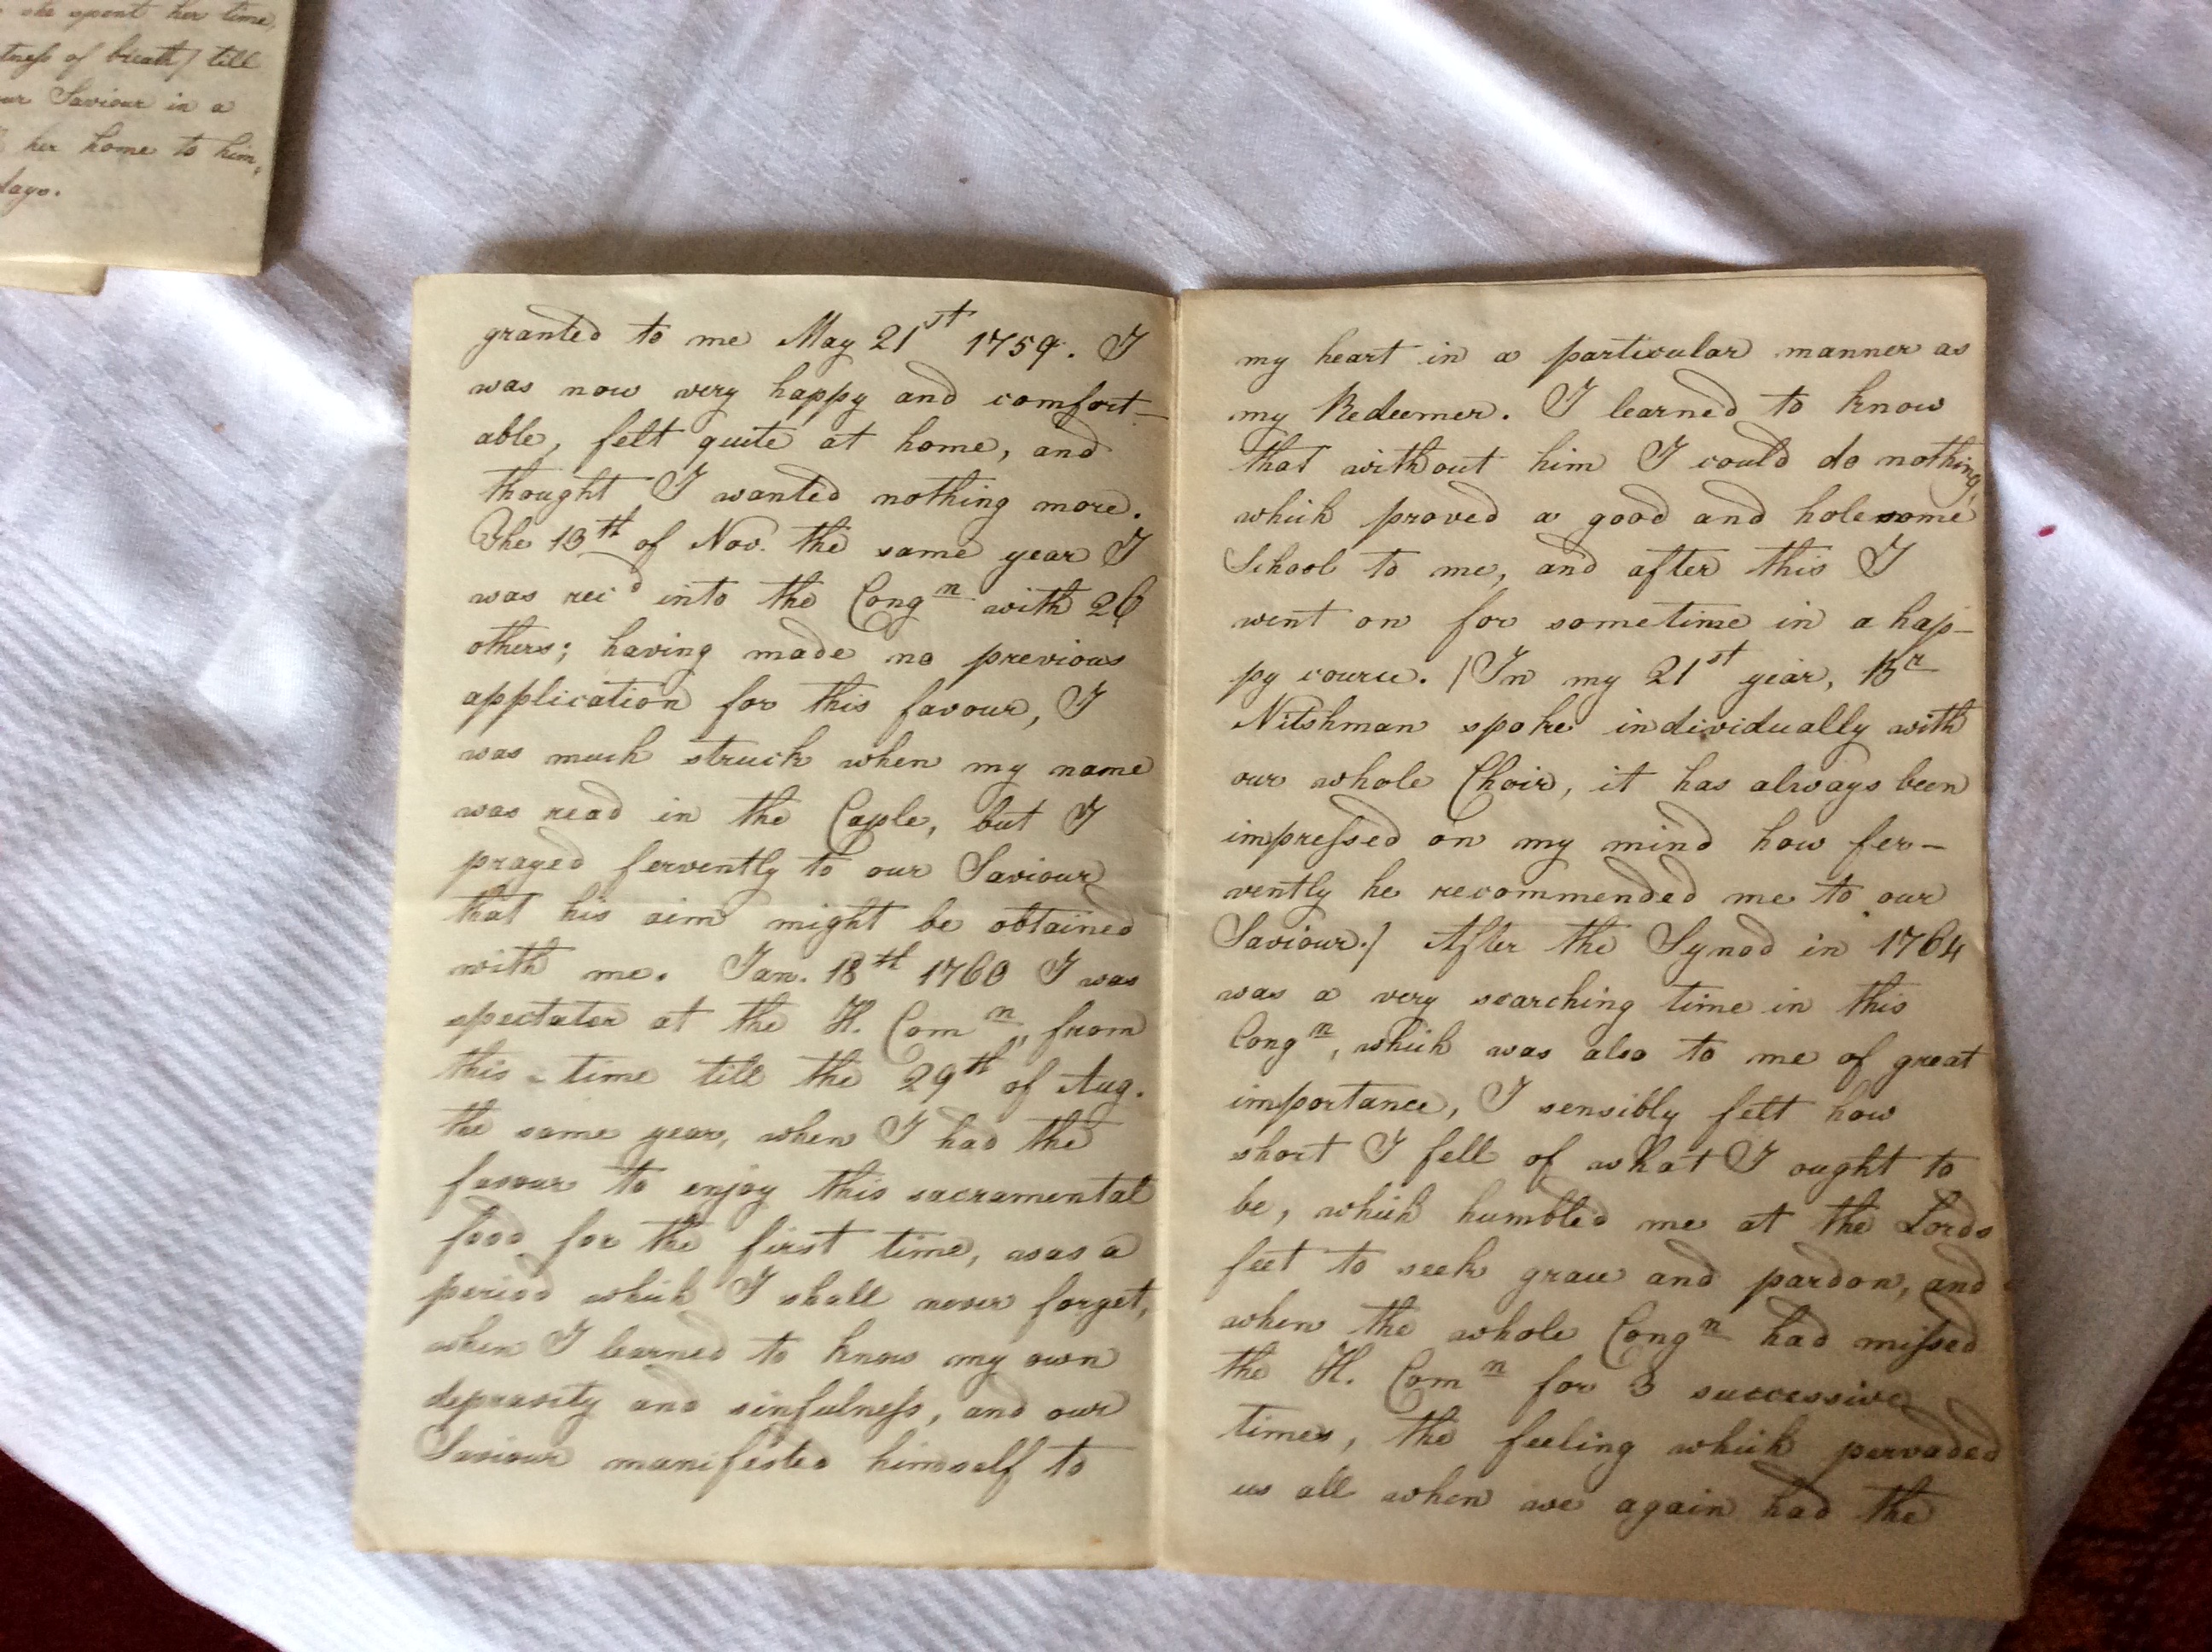 she spent her time,
tness of breath) till
our Saviour in a
her home to him,
days.
granted to me May 21st 1759. I
was now very happy and comfort-
able, felt quite at home, and
thought I wanted nothing more.
The 13th of Nov. the same year I
was rec'd into the Congn with 26
others; having made no previous
application for this favour, I
was much struck when my name
was read in the Caple, but I
prayed fervently to our Saviour
that his aim might be obtained
with me. Jan. 18th 1760 I was
spectator at the H. Comn, from
this time till the 29th of Aug.
the same year, when I had the
favour to enjoy this sacramental
food for the first time, was a
period which I shall never forget,
when I learned to know my own
depravity and sinfulness, and our
Saviour manifested himself to
my heart in a particular manner as
my Redeemer. I learned to know
that without him I could do nothing,
which proved a good and holesome
School to me, and after this I
went on for sometime in a hap-
py course. /In my 21st year, Br
Nitshman spoke individually with
our whole Choir, it has always been
impressed on my mind how fer-
vently he recommended me to our
Saviour./ After the Synod in 1764
was a very searching time in this
Congn, which was also to me of great
importance, I sensibly felt how
short I fell of what I ought to
be, which humbled me at the Lords
feet to seek grace and pardon, and
when the whole Congn had missed
the H. Comn for 3 successive
times, the feeling which pervaded
us all when we again had the